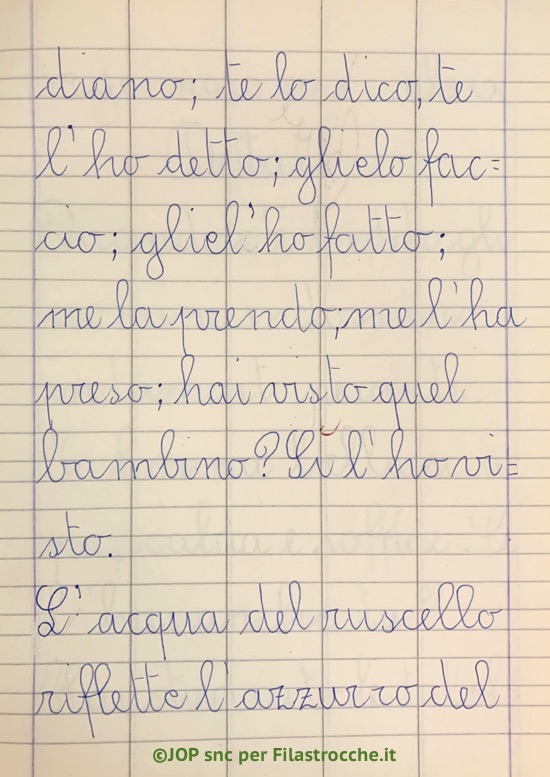 diano; te lo dico, te
l'ho detto; glielo fac=
cio; gliel'ho fatto;
me la prendo; me l'ha
preso; hai visto quel
bambino? Sì l'ho vi=
sto.
L'acqua del ruscello
riflette l'azzurro del
©JOP snc per Filastrocche.it